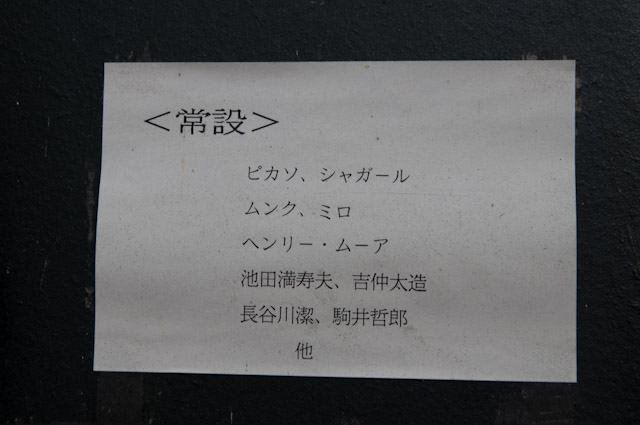 ＜常設＞
ピカソ、シャガール
ムンク、ミロ
ヘンリー・ムーア
池田満寿夫、吉仲太造
長谷川潔、駒井哲郎
他